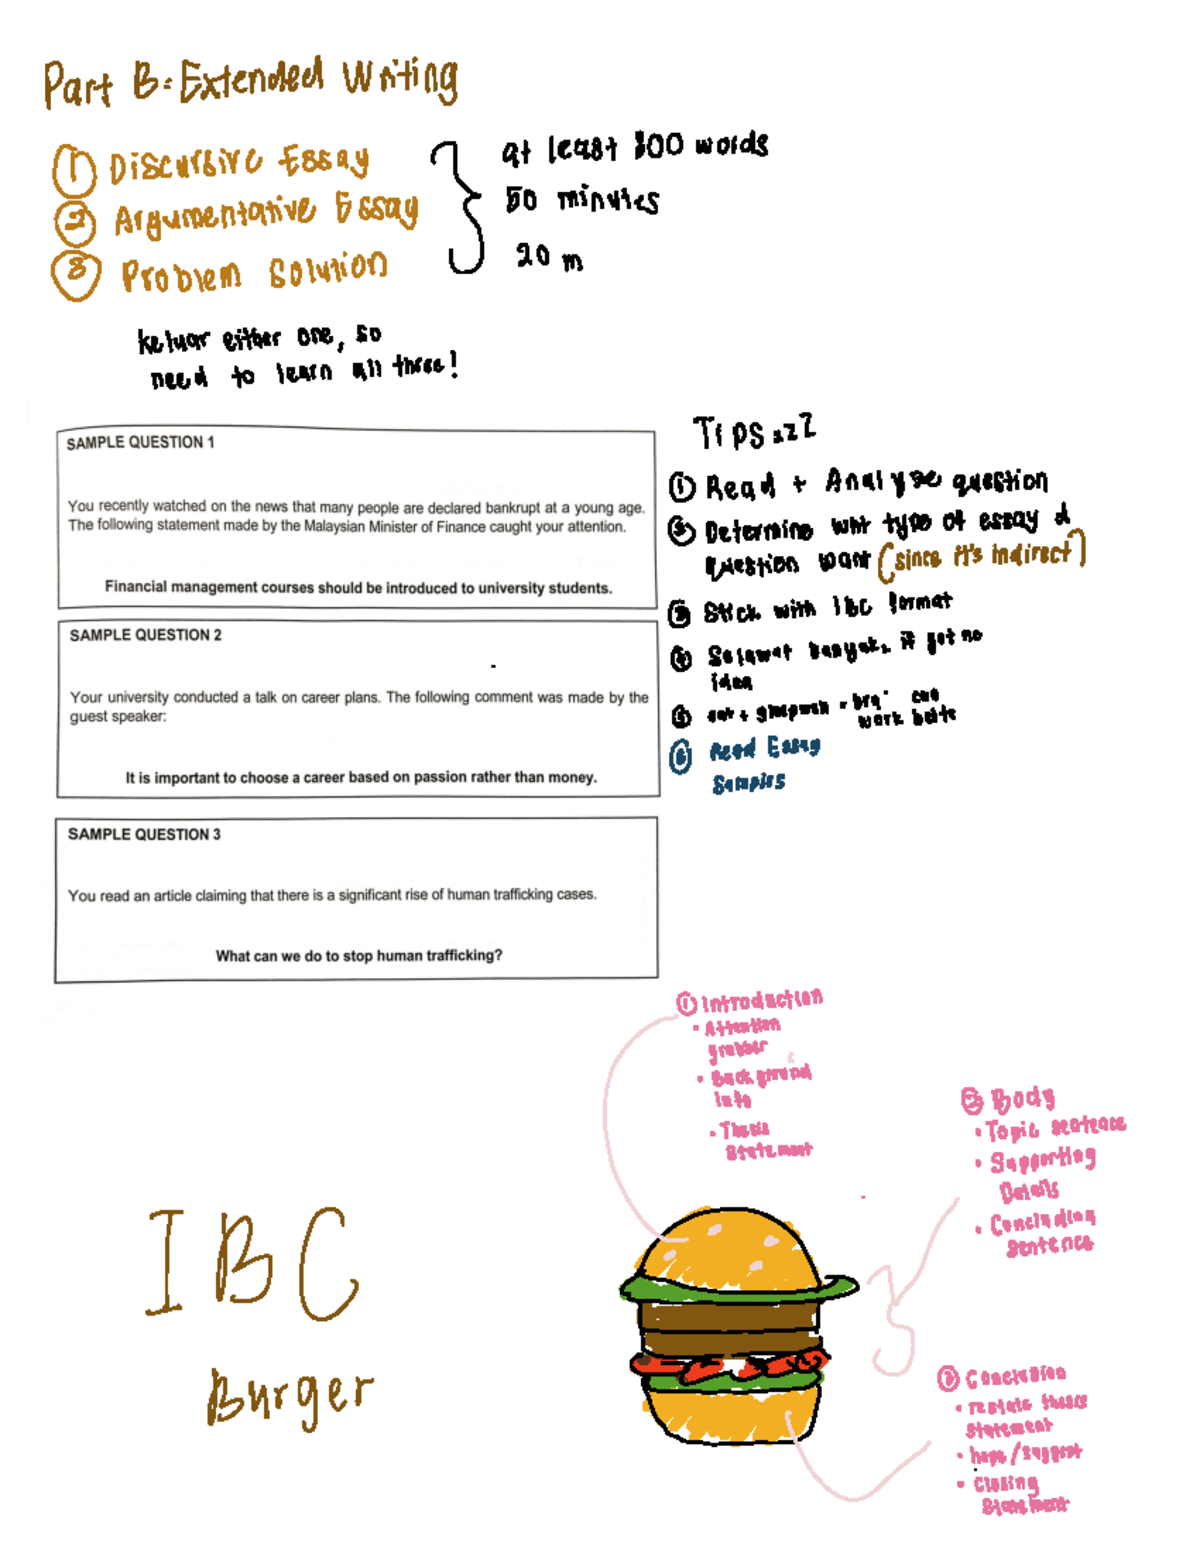 Part B: Extended Writing
① Discursive Essay
② Argumentative Essay
③ Problem Solution
at least 300 words
50 minutes
20 m
keluar either one, so
need to learn all three!
SAMPLE QUESTION 1
You recently watched on the news that many people are declared bankrupt at a young age.
The following statement made by the Malaysian Minister of Finance caught your attention.
Financial management courses should be introduced to university students.
SAMPLE QUESTION 2
Your university conducted a talk on career plans. The following comment was made by the
guest speaker:
It is important to choose a career based on passion rather than money.
SAMPLE QUESTION 3
You read an article claiming that there is a significant rise of human trafficking cases.
What can we do to stop human trafficking?
Tips
① Read + Analyse question
② Determine wht type of essay d
question want (since it's indirect)
③ Stick with IBC format
④ Selawat banyak, if got no
idea
⑤ eat + can
work
⑥ Read Essay
Samples
① Introduction
• Attention
grabber
• Background
info
• Thesis
Statement
② Body
• Topic sentence
• Supporting
Details
• Concluding
Sentence
③ Conclusion
• restate thesis
statement
• hope/suggest
• Closing
Statement
IBC
Burger